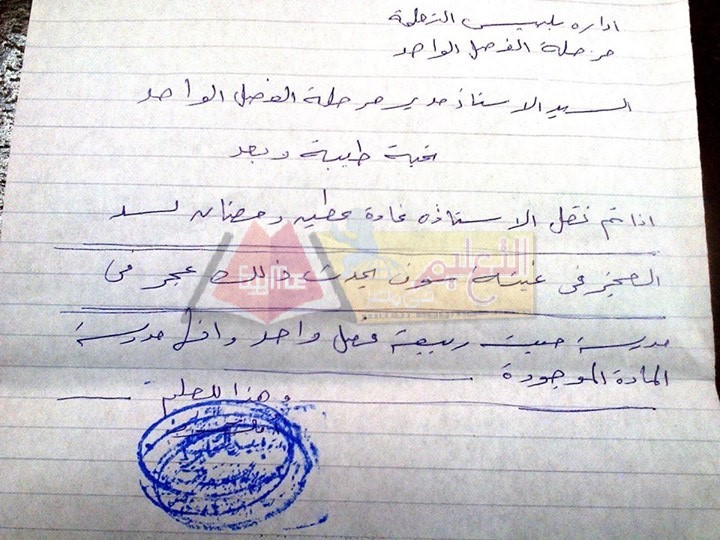 اداره بلبيس التعلمية
مرحلة الفصل الواحد
السيد الاستاذ مدير مرحلة الفصل الواحد
تحية طيبة وبعد
اذا تم نقل الاستاذه غادة عطيه رمضان لسد
العجز فى غيتة سوف يحدث ذلك عجز فى
مدرسة ميت ربيعة فصل واحد وانى مدرسة
المادة الموجودة
وهذا للعلم
التعليم
EgyMoe